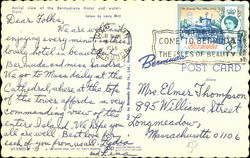 Aerial view of the Bermudiana Hotel and water-
Color by Larry Witt
Dear Folks,
We are well and
enjoying every minute. Our
lovely hotel is beautiful
Bermuda and miss Sandra
We go to Mass daily at the
Cathedral where at the top
of the tower affords a very
commanding view of the
entire Island. We hope you
all are well. Best love
COME TO BERMUDA
THE ISLES OF BEAUTY
Bermuda
POST CARD
Mrs. Elmer Thompson
895 Williams Street
Longmeadow,
Massachusetts 01106